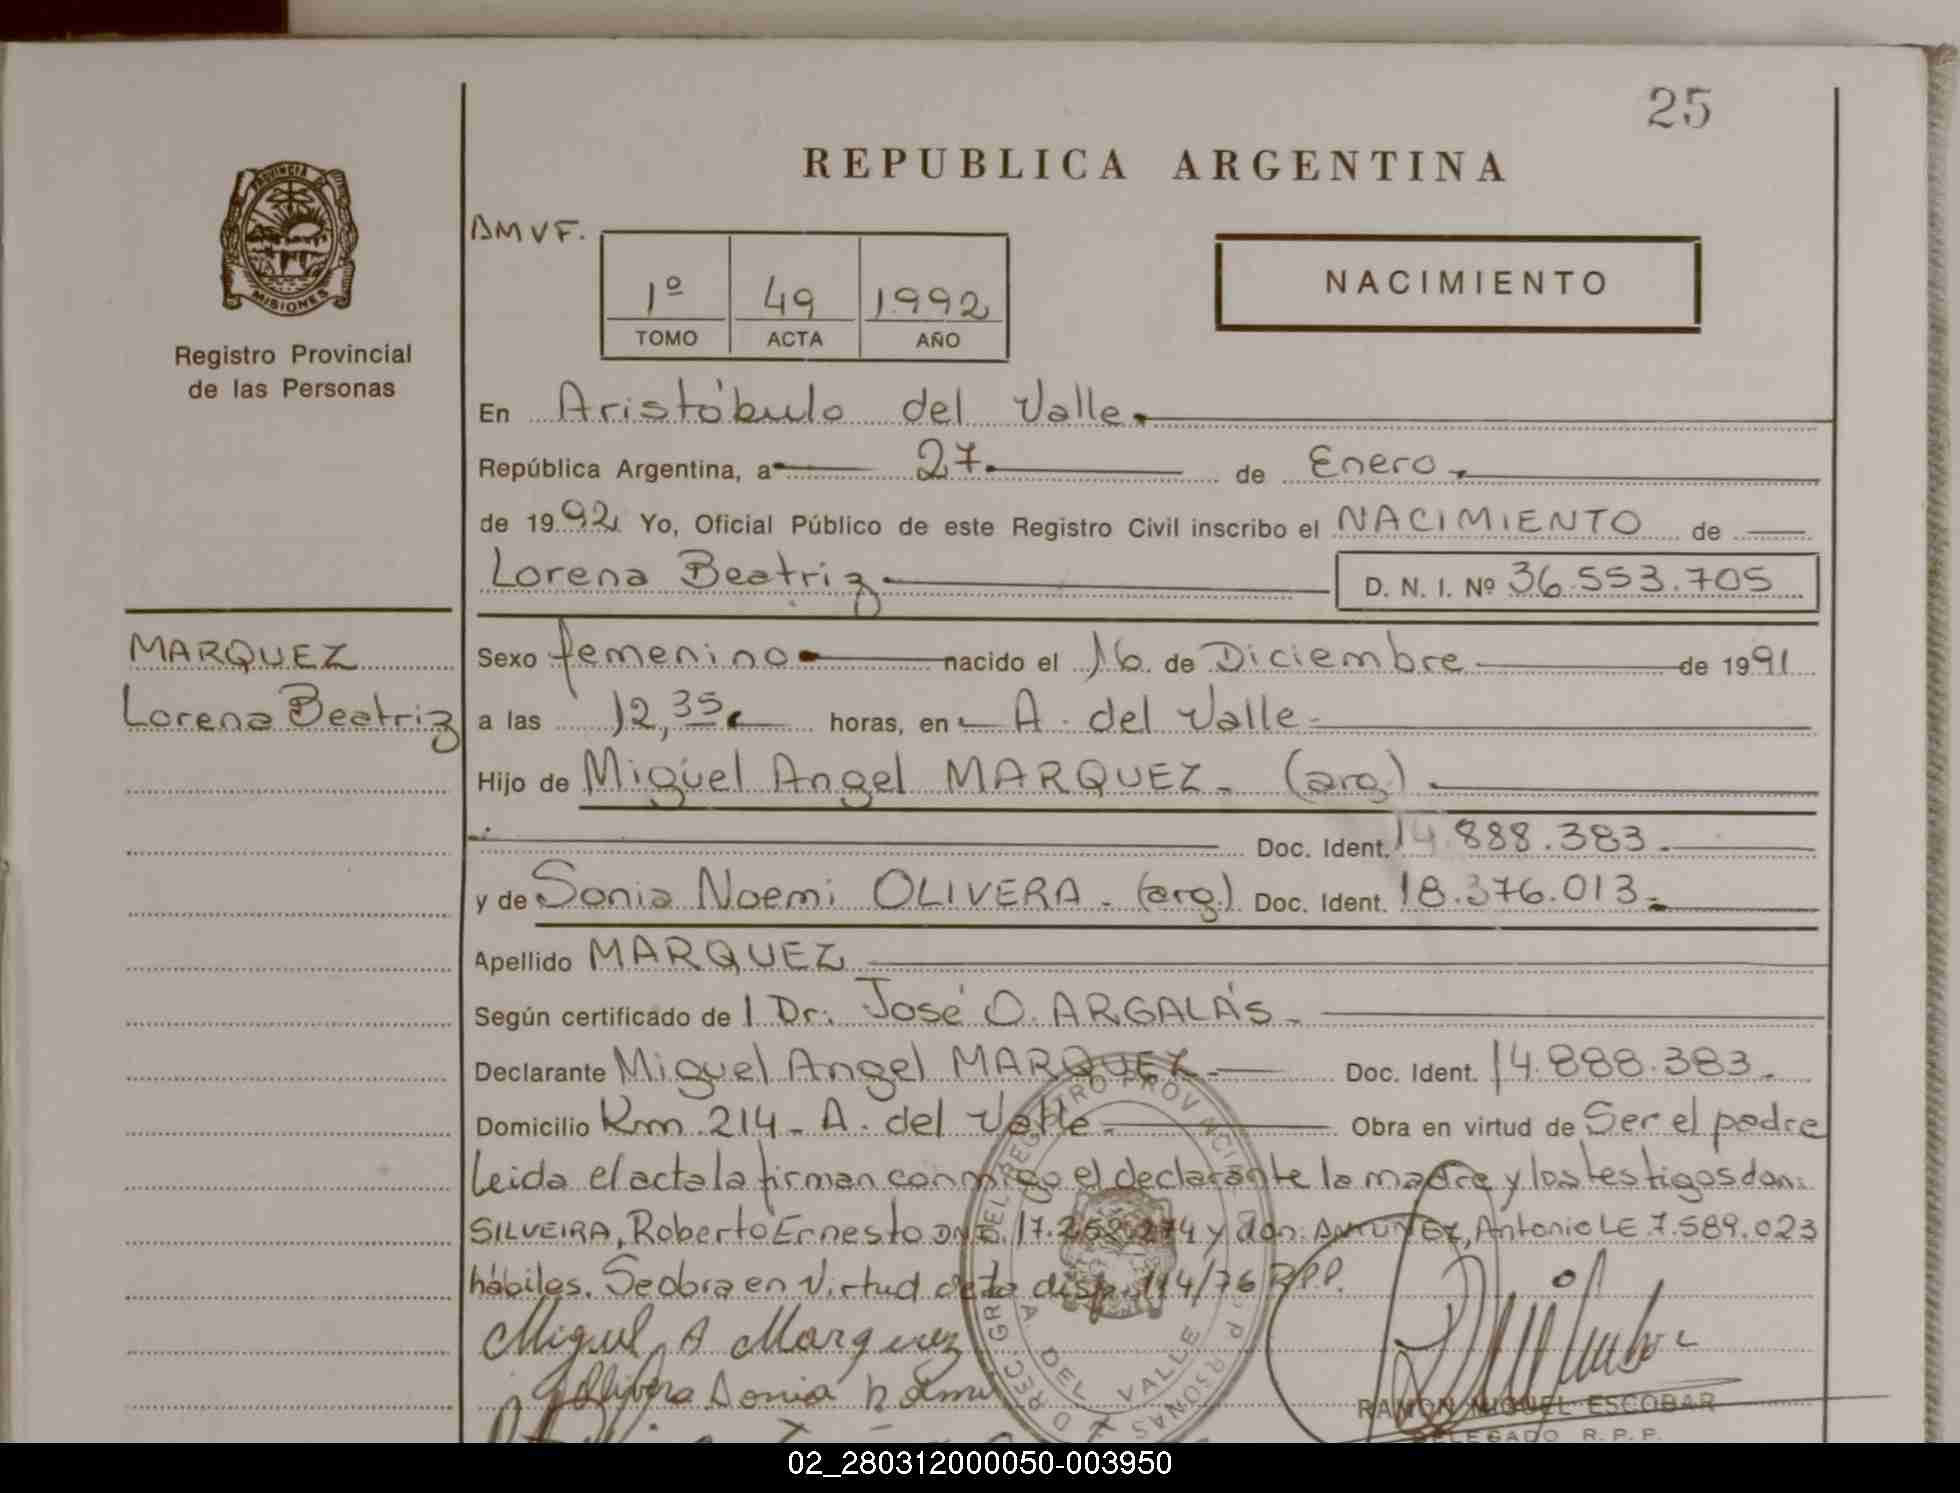 25
REPUBLICA ARGENTINA
PROVINCIA DE
MISIONES
Registro Provincial
de las Personas
1º 49 1992
TOMO ACTA AÑO
NACIMIENTO
En Aristóbulo del Valle.
República Argentina, a 27. de Enero.
de 1992 Yo, Oficial Público de este Registro Civil inscribo el NACIMIENTO de
Lorena Beatriz D. N. I. Nº 36.553.705
MARQUEZ
Lorena Beatriz
Sexo femenino nacido el 16 de Diciembre de 1991
a las 12,35 horas, en A. del Valle.
Hijo de Miguel Angel MARQUEZ. (arg).
Doc. Ident. 14.888.383.
y de Sonia Noemi OLIVERA. (arg.) Doc. Ident. 18.376.013.
Apellido MARQUEZ
Según certificado de l Dr. José O. ARGALÁS.
Declarante Miguel Angel MARQUEZ. Doc. Ident. 14.888.383.
Domicilio Km 214. A. del Valle. Obra en virtud de Ser el padre
Leida el acta la firman conmigo el declarante la madre y los testigos don:
SILVEIRA, Roberto Ernesto DNI. y don: ANTUNEZ, Antonio LE 7.589.023
hábiles. Se obra en virtud de la disp. 114/76 R.P.P.
Miguel A Marquez
Olivera Sonia
RAMON MIGUEL ESCOBAR
DELEGADO R. P. P.
02_280312000050-003950